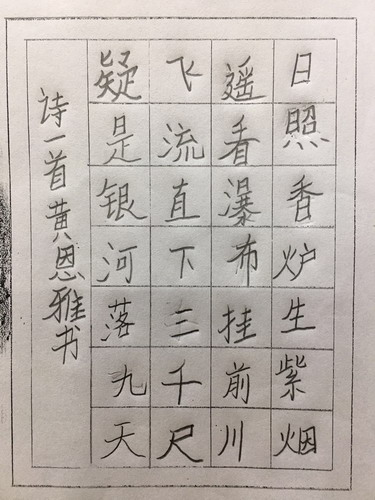 日照香炉生紫烟
遥看瀑布挂前川
飞流直下三千尺
疑是银河落九天
诗一首黄恩雅书